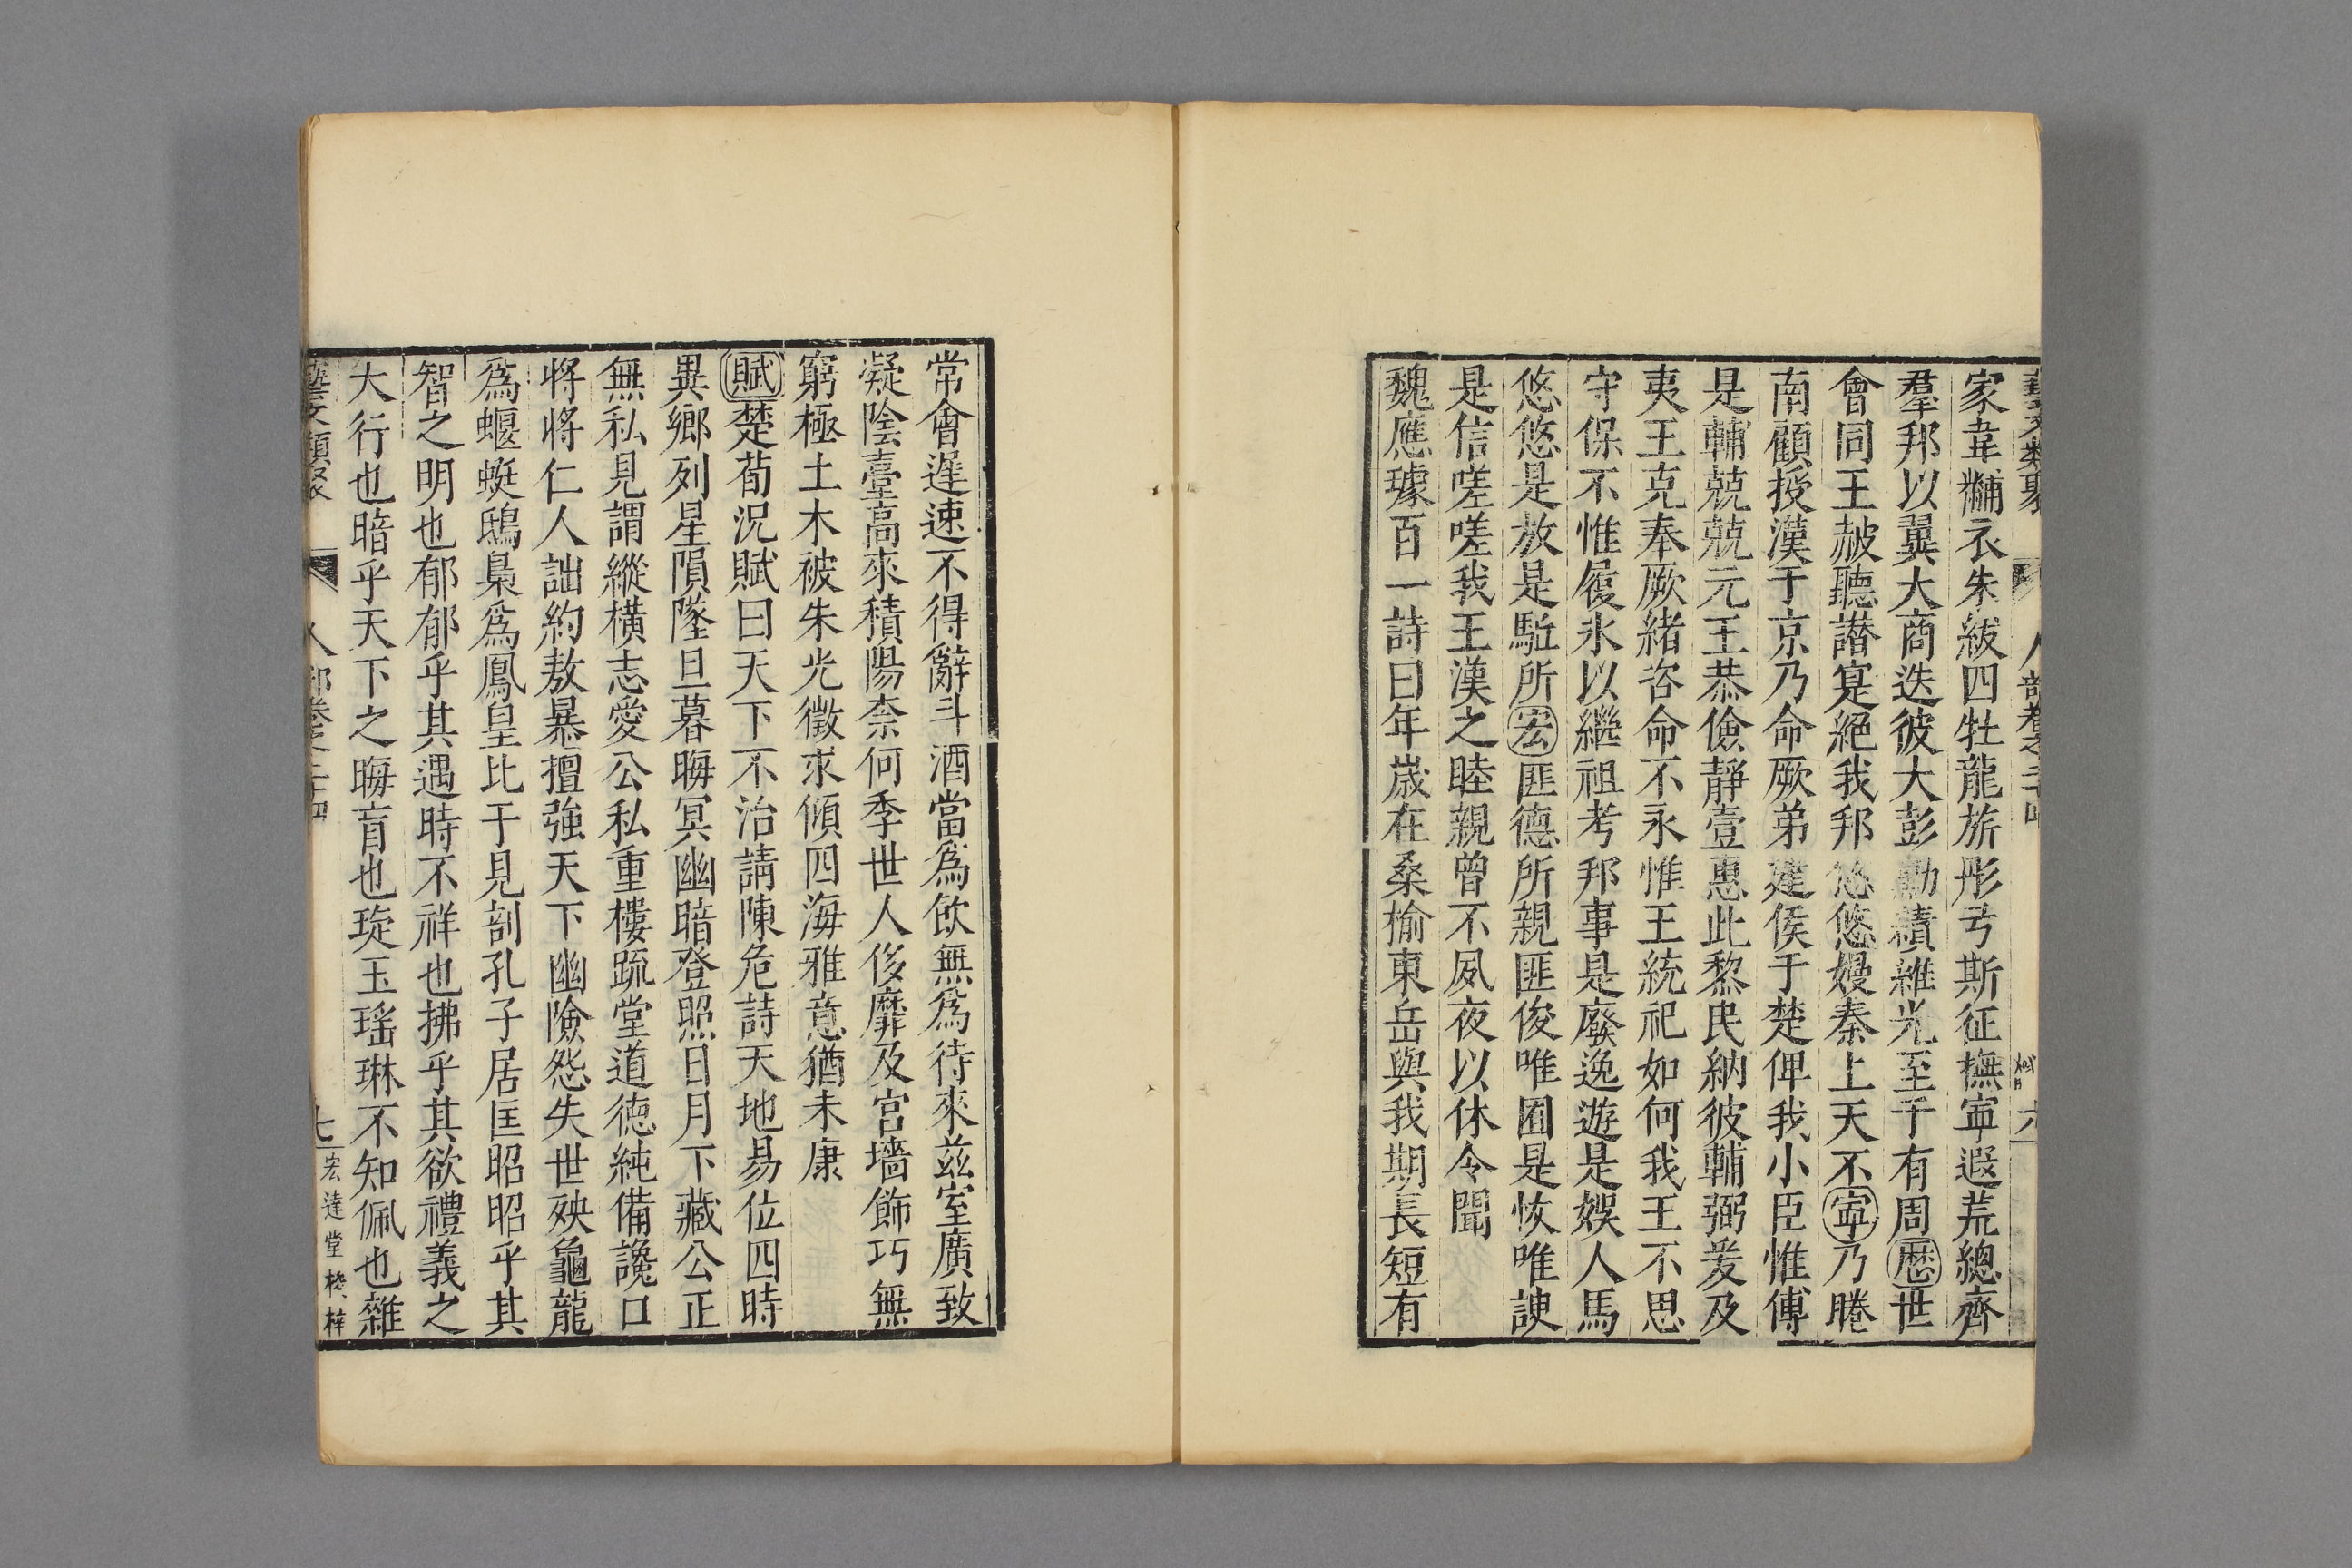 藝文類聚 人部卷之二十四 六
家韋黼衣朱紱四牡龍旂彤弓斯征撫寧遐荒總齊
羣邦以翼大商迭彼大彭勳績維光至于有周歷世
會同王赧聽譖寔絕我邦悠悠嫚秦上天不寧乃睠
南顧授漢于京乃命厥弟建侯于楚俾我小臣惟傅
是輔兢兢元王恭儉靜壹惠此黎民納彼輔弼爰及
夷王克奉厥緒咨命不永惟王統祀如何我王不思
守保不惟履氷以繼祖考邦事是廢逸遊是娛人馬
悠悠是放是駈所宏匪德所親匪俊唯囿是恢唯諛
是信嗟嗟我王漢之睦親曾不夙夜以休令聞
魏應璩百一詩曰年歲在桑榆東岳與我期長短有
常會遲速不得辭斗酒當爲飲無爲待來茲室廣致
凝陰臺高來積陽柰何季世人侈靡及宮墻飾巧無
窮極土木被朱光徵求傾四海雅意猶未康
賦楚荀況賦曰天下不治請陳危詩天地易位四時
異鄉列星隕墜旦暮晦冥幽暗登照日月下藏公正
無私見謂縱橫志愛公私重樓疏堂道德純備讒口
將將仁人詘約敖暴擅強天下幽險怨失世殃龜龍
爲蝘蜓鴟梟爲鳳皇比干見剖孔子居匡昭昭乎其
智之明也郁郁乎其遇時不祥也拂乎其欲禮義之
大行也暗乎天下之晦盲也琁玉瑤琳不知佩也雜
藝文類聚 人部卷之二十四 七 宏達堂校梓